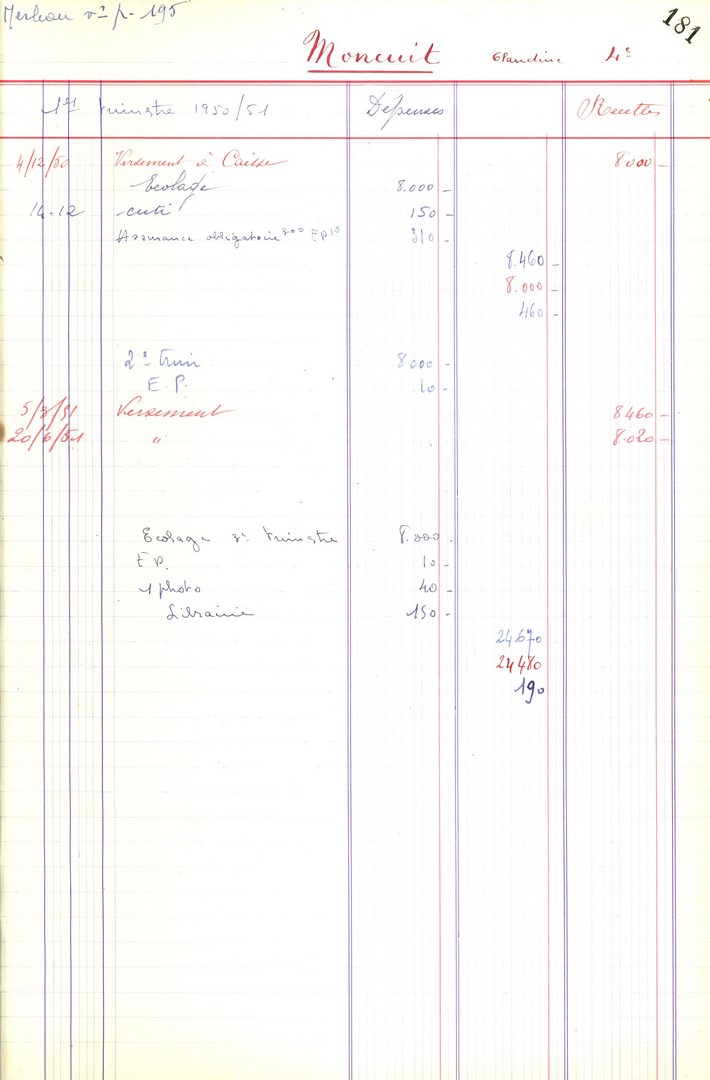 vᵉ p. 195
181
Moncuit Claudine 4ᵉ
1er trimestre 1950/51 Dépenses Recettes
4/12/50 Versement à Caisse 8000-
Ecolage 8.000-
14-12 cuti 150-
Assurance obligatoire 300 EP 10 310-
8.460-
8.000-
460-
2ᵉ trim 8000-
E.P. 10-
5/3/51 Versement 8460-
20/6/51 " 8.020-
Ecolage 3ᵉ trimestre 8.000.
E P. 10-
1 photo 40-
Librairie 150-
24670
24480
190